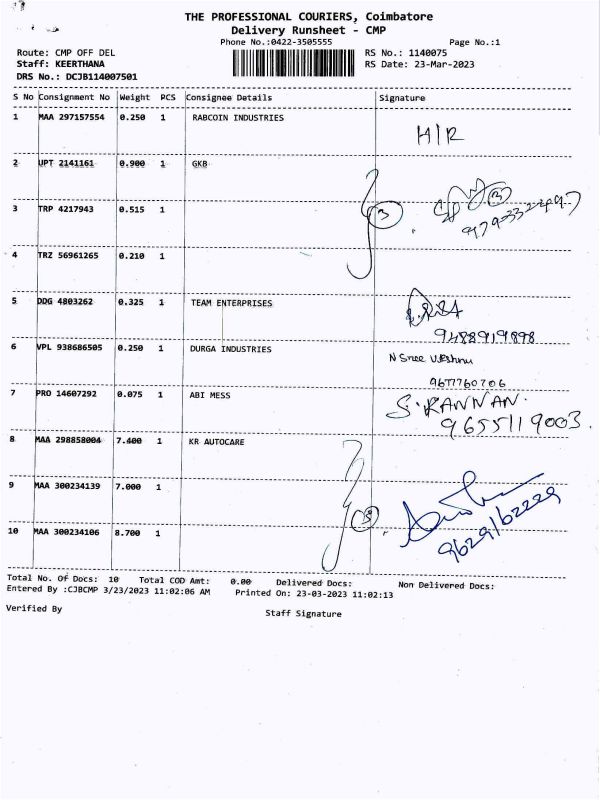 THE PROFESSIONAL COURIERS, Coimbatore
Delivery Runsheet - CMP
Phone No.:0422-3505555 Page No.:1
Route: CMP OFF DEL RS No.: 1140075
Staff: KEERTHANA RS Date: 23-Mar-2023
DRS No.: DCJB114007501
S No Consignment No Weight PCS Consignee Details Signature
1 MAA 297157554 0.250 1 RABCOIN INDUSTRIES
H/R
2 UPT 2141161 0.900 1 GKB
3 TRP 4217943 0.515 1
3
4 TRZ 56961265 0.210 1
5 DDG 4803262 0.325 1 TEAM ENTERPRISES
9488919898
6 VPL 938686505 0.250 1 DURGA INDUSTRIES
N Sree Vishnu
9677760706
7 PRO 14607292 0.075 1 ABI MESS
S. KANNAN.
9655119003.
8 MAA 298858004 7.400 1 KR AUTOCARE
9 MAA 300234139 7.000 1
3
9629162229
10 MAA 300234106 8.700 1
Total No. Of Docs: 10 Total COD Amt: 0.00 Delivered Docs: Non Delivered Docs:
Entered By :CJBCMP 3/23/2023 11:02:06 AM Printed On: 23-03-2023 11:02:13
Verified By Staff Signature